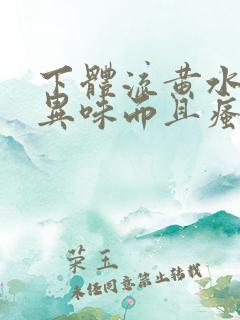 下體流黃水
異味而且瘙
荣玉
未经同意禁止转载